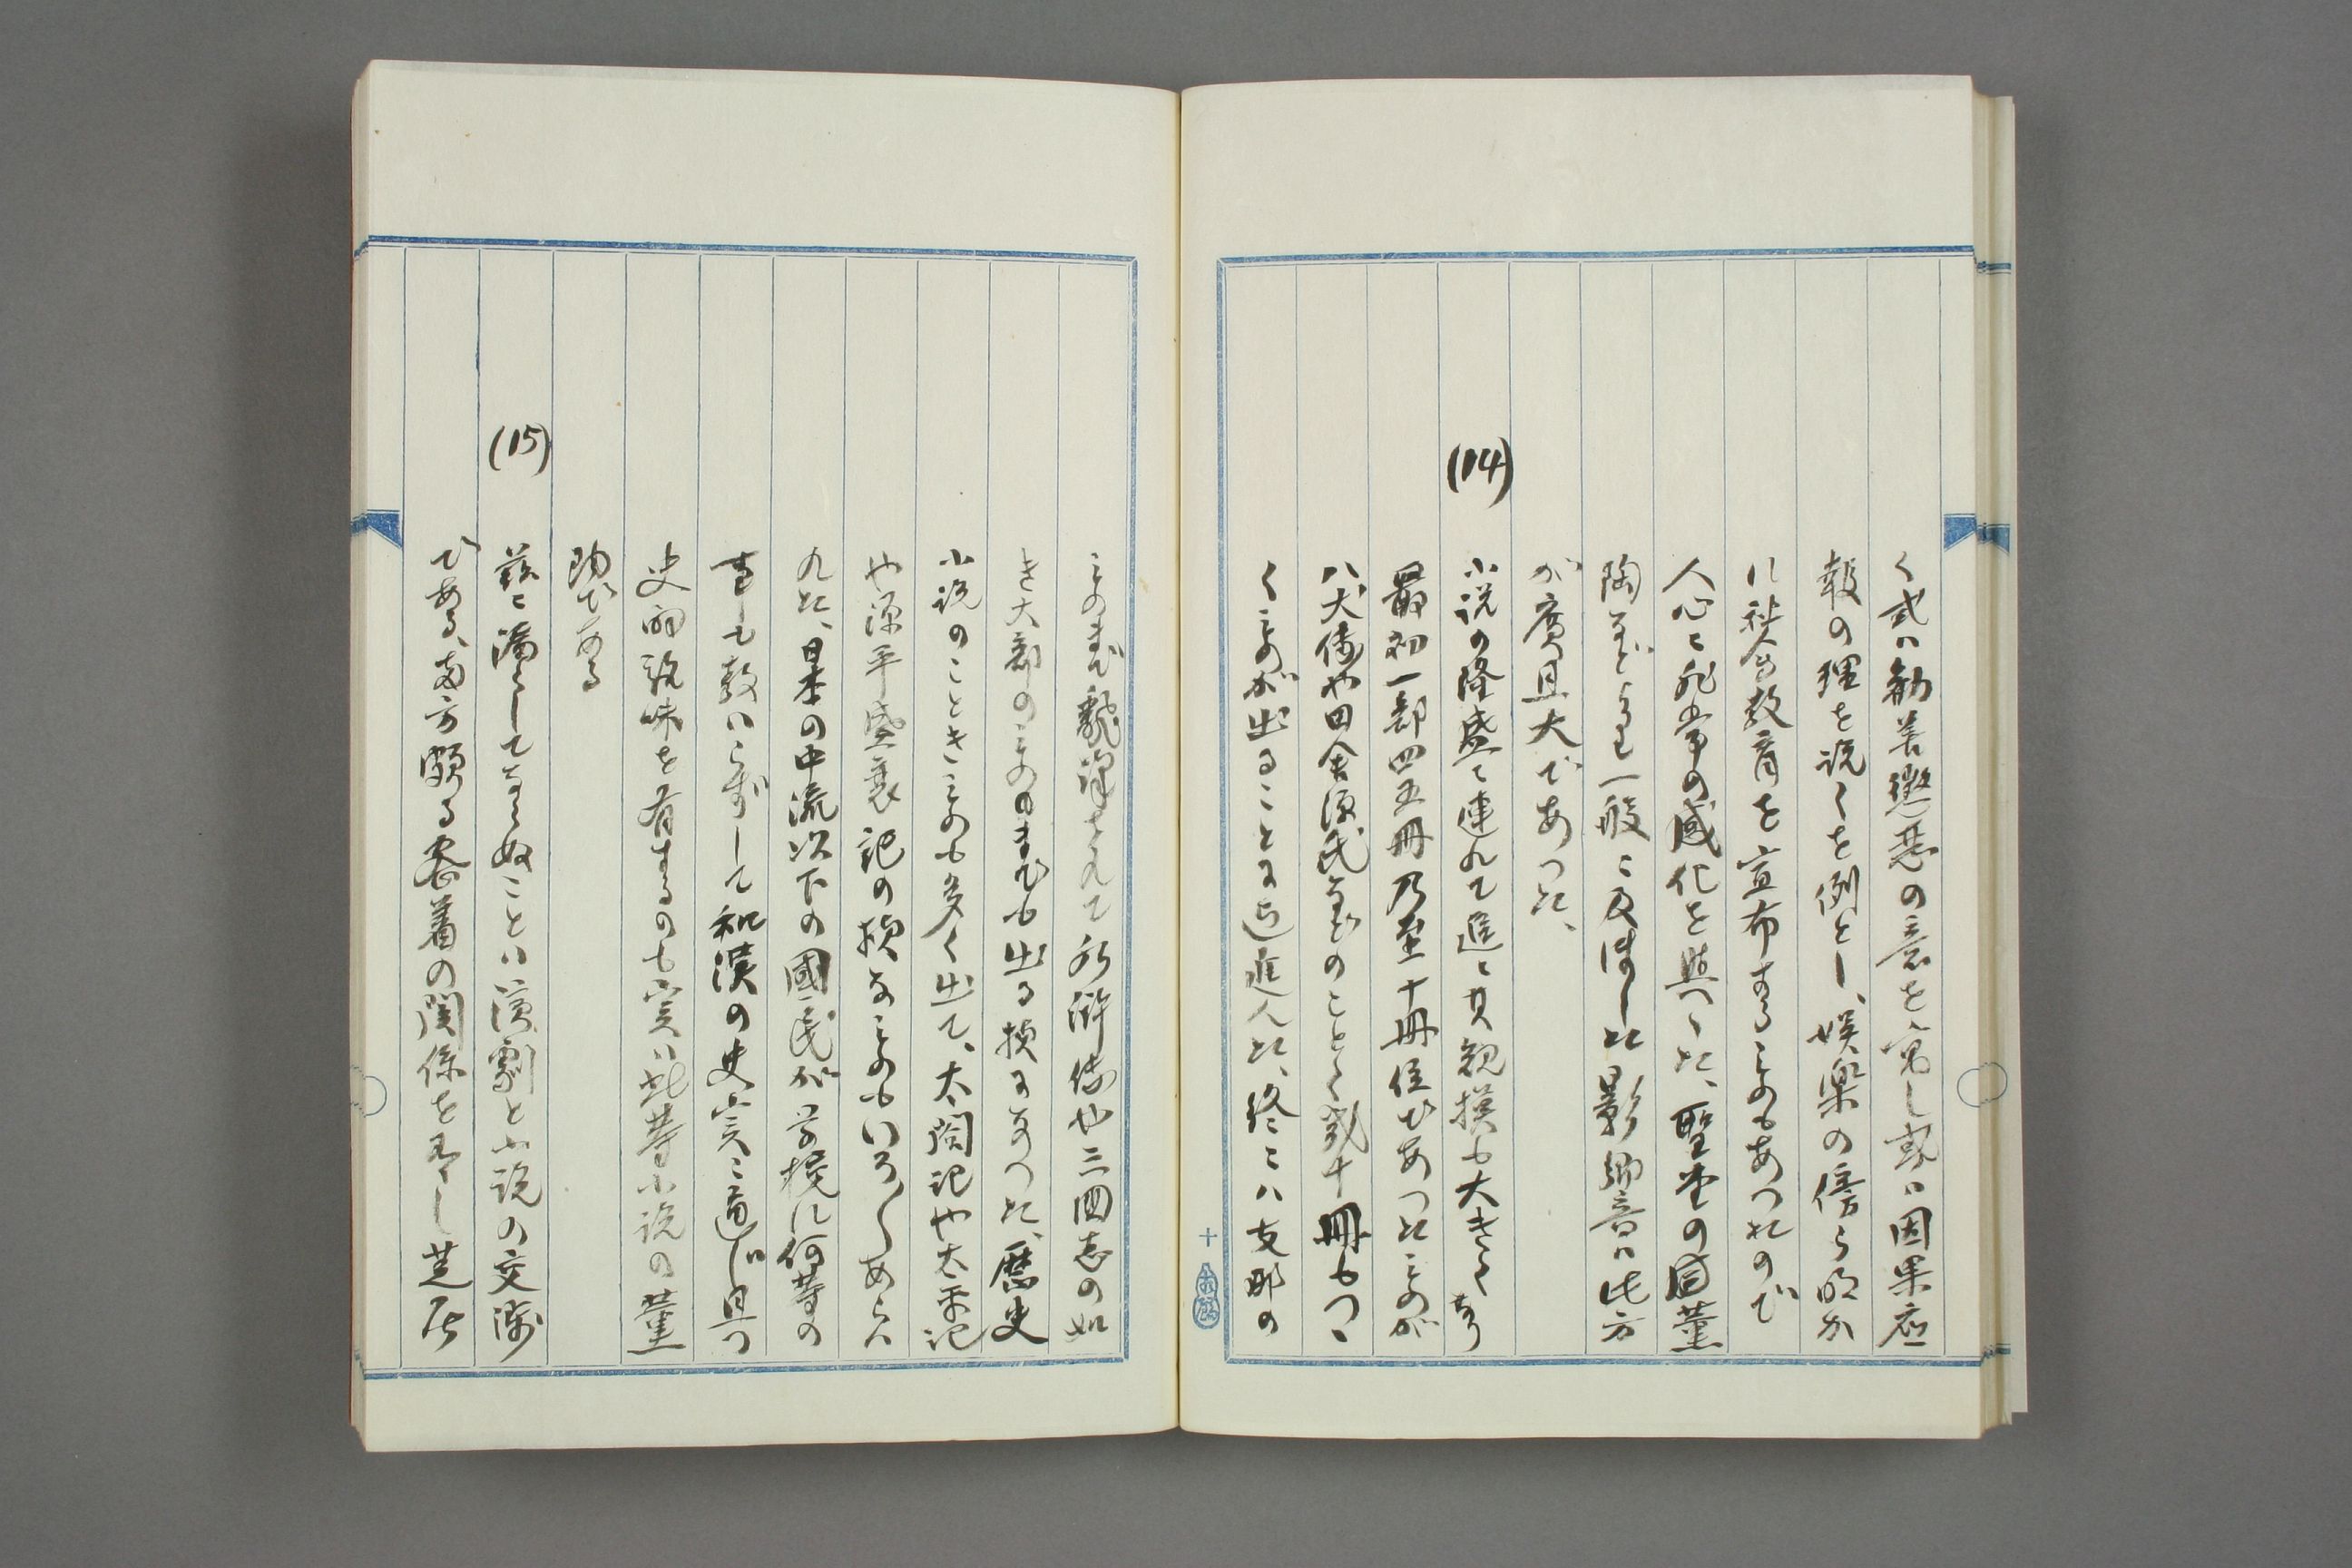 く或は勧善懲惡の意を寓し或は因果應
報の理を説くを例とし、娯楽の傍ら明か
に社会教育を宣布するものもあつたので
人心に非常の感化を與へた、聖堂の薫
陶などよりも一般に及ぼした影響は此方
が廣且大であつた、
(14)
小説の隆盛に連れて進て其規模も大きくなり
最初一部四五冊乃至十冊位であつたものが
八犬傳や田舎源氏などのことく幾十冊もつゝ
くものが出ることに迄進んた、終には支那の
十
ものまで飜譯されて水滸傳や三國志の如
き大部のものまでも出る様になつた、歴史
小説のこときものも多く出て、太閤記や太平記
や源平盛衰記の様なものもいろ〱あらハ
れた、日本の中流以下の國民が学校に何等の
事も教はらずして和漢の史実に通じ且つ
史的趣味を有するのも実は此等小説の薫
陶である
(15)
茲に漏してならぬことは演劇と小説の交渉
である、両方頗る密着の関係を有し芝居